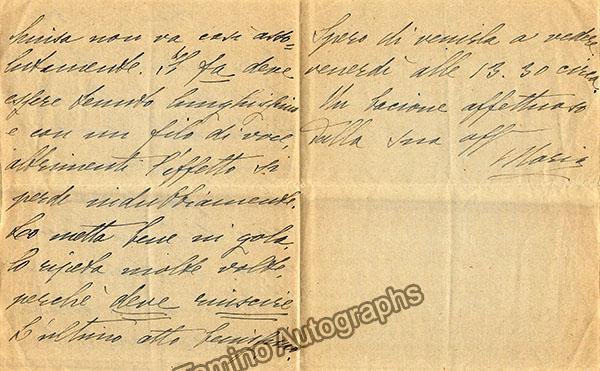 Luisa non va così asso-
lutamente. Il fa deve
essere tenuto lunghissimo
e con un filo di voce,
altrimenti l'effetto si
perde indubbiamente.
Lo metta bene in gola,
lo ripeta molte volte,
perchè deve riuscire
L'ultimo atto benissimo.
Spero di venirla a vedere
venerdì alle 13.30 circa.
Un bacione affettuoso
dalla sua aff
Maria
Tamino Autographs